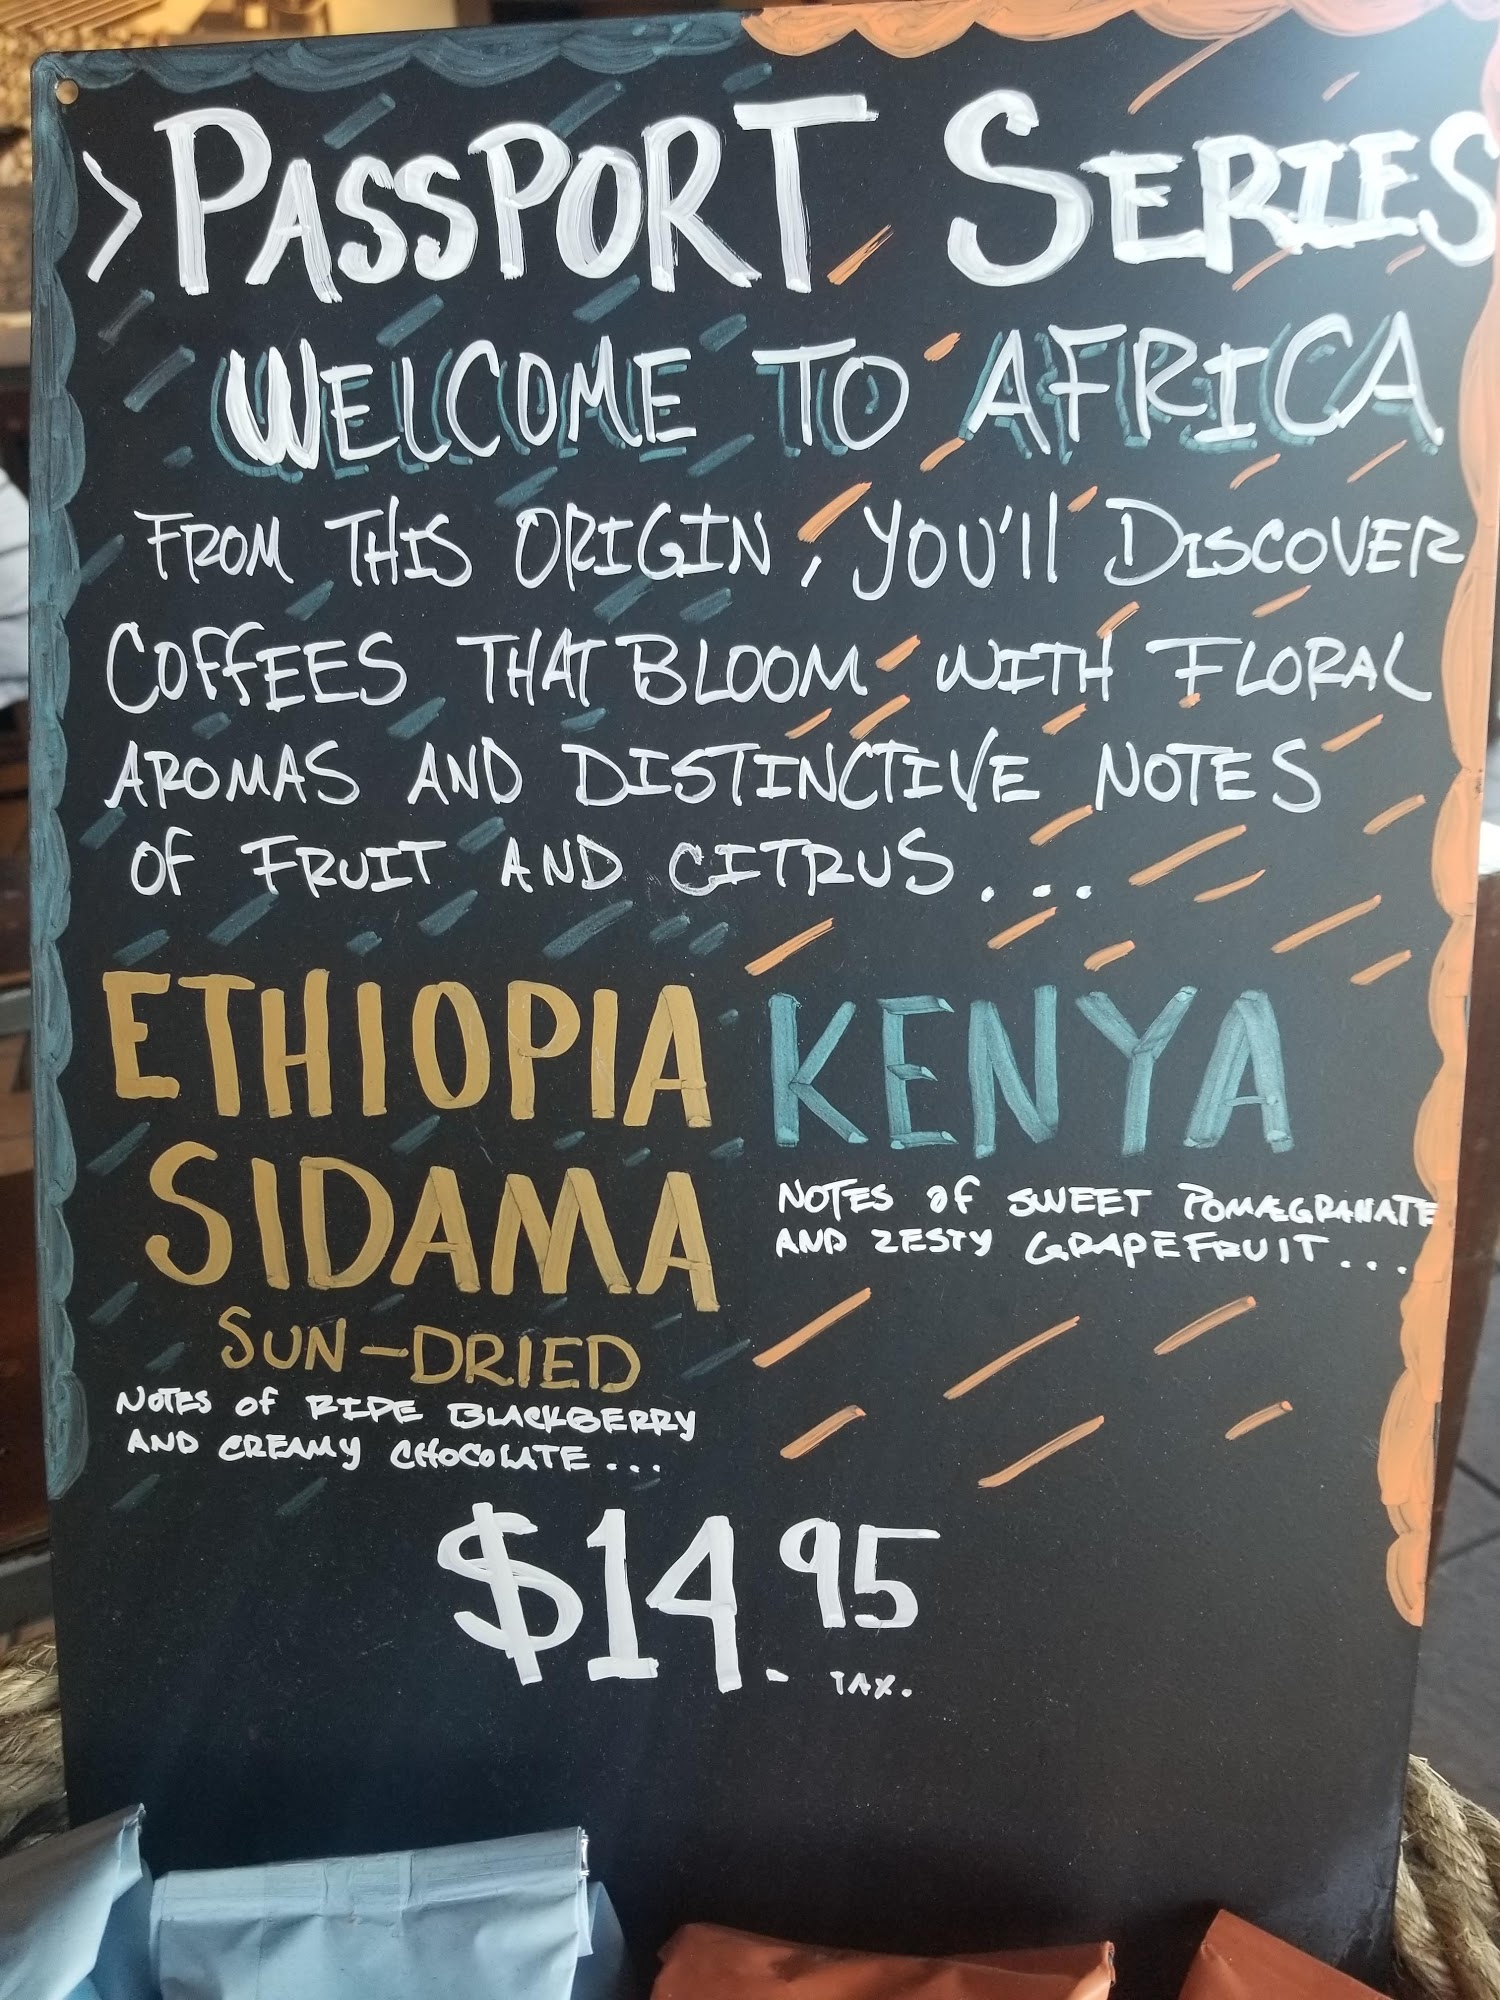 >PASSPORT SERIES
WELCOME TO AFRICA
FROM THIS ORIGIN, YOU'll DISCOVER
COFFEES THAT BLOOM WITH FLORAL
AROMAS AND DISTINCTIVE NOTES
OF FRUIT AND CITRUS...
ETHIOPIA
SIDAMA
SUN-DRIED
NOTES OF RIPE BLACKBERRY
AND CREAMY CHOCOLATE...
KENYA
NOTES OF SWEET POMAEGRANATE
AND ZESTY GRAPEFRUIT...
$14.95
TAX.